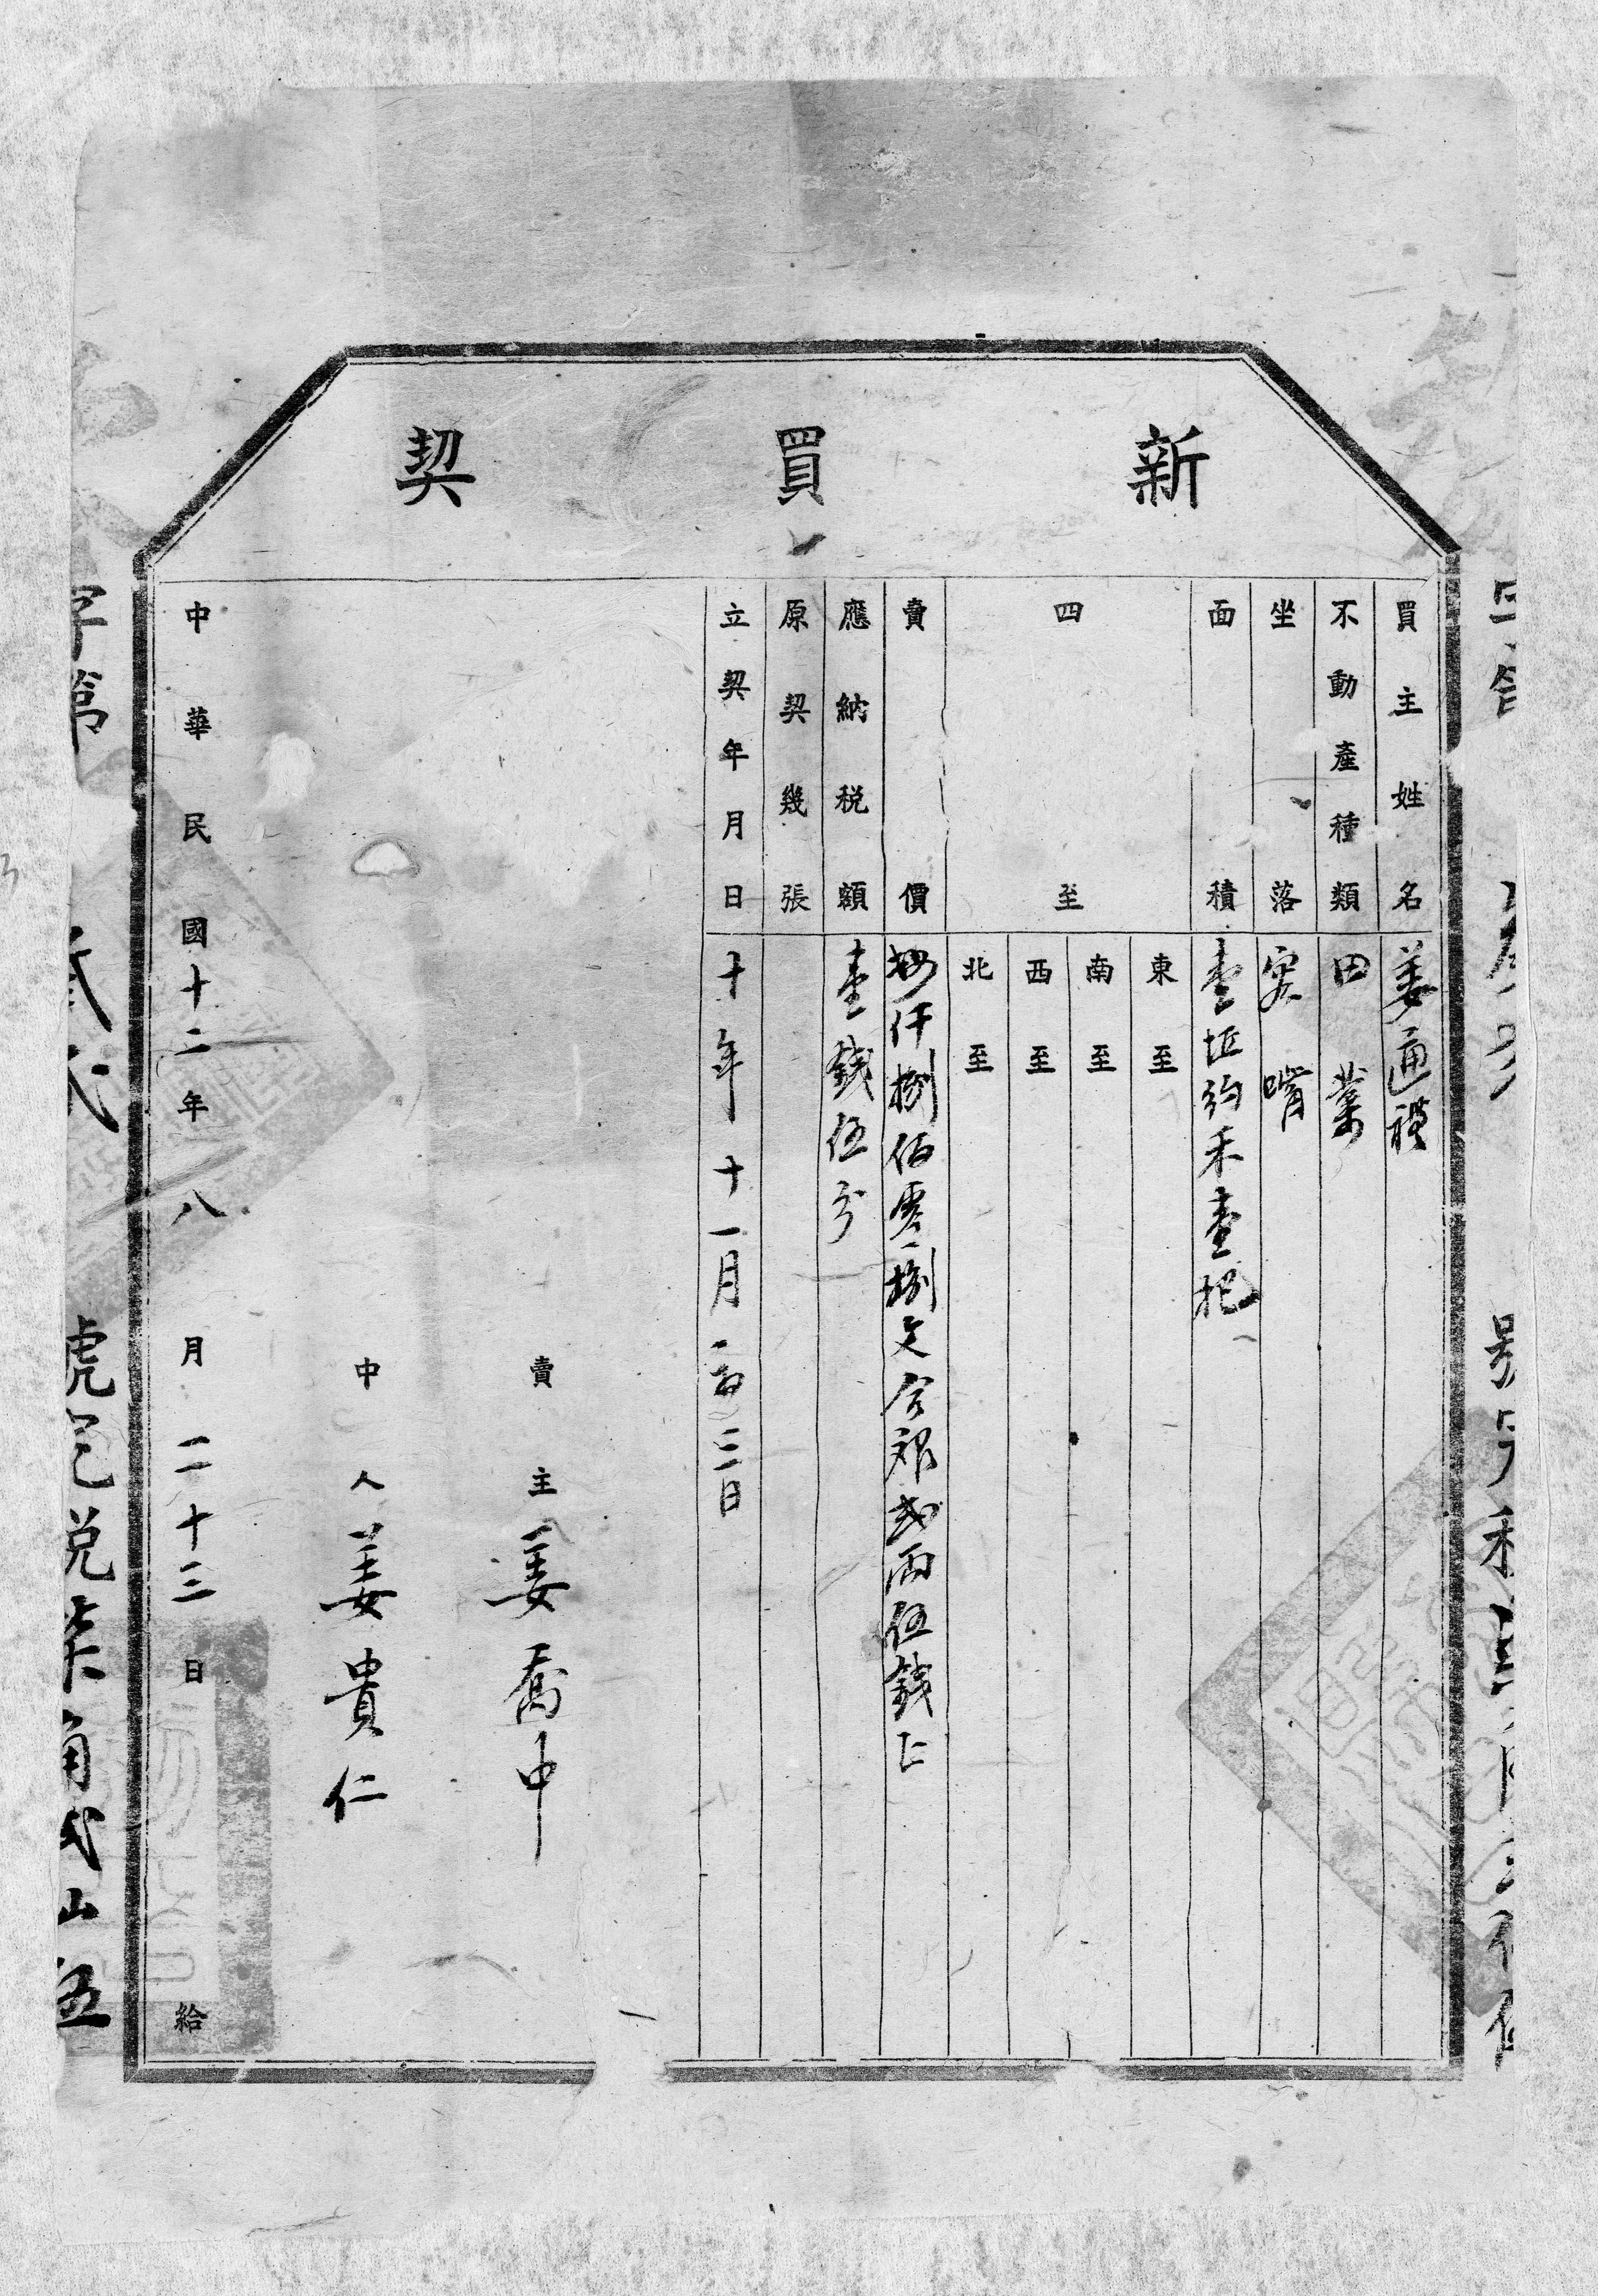 新買契
買主姓名 姜通禄
不動產種類 田業
坐落
面積 壹坵約禾壹把
四至
東至
南至
西至
北至
賣價 仟捌佰零捌文合銀弍両伍錢正
應納稅額 壹錢伍分
原契幾張
立契年月日 十年十一月三日
賣主 姜喬中
中人 姜貴仁
中華民國十二年八月二十三日給
字第 號完稅柒角弍 伍